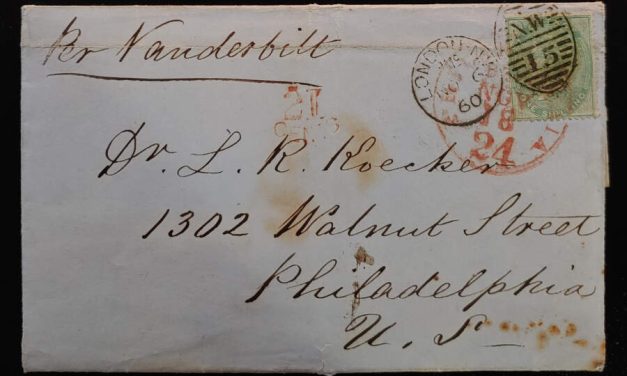 Per Vanderbilt
LONDON·N.W
60
N.W
15
21
CENTS
18
24
Dr. L. R. Koecker
1302 Walnut Street
Philadelphia
U. S